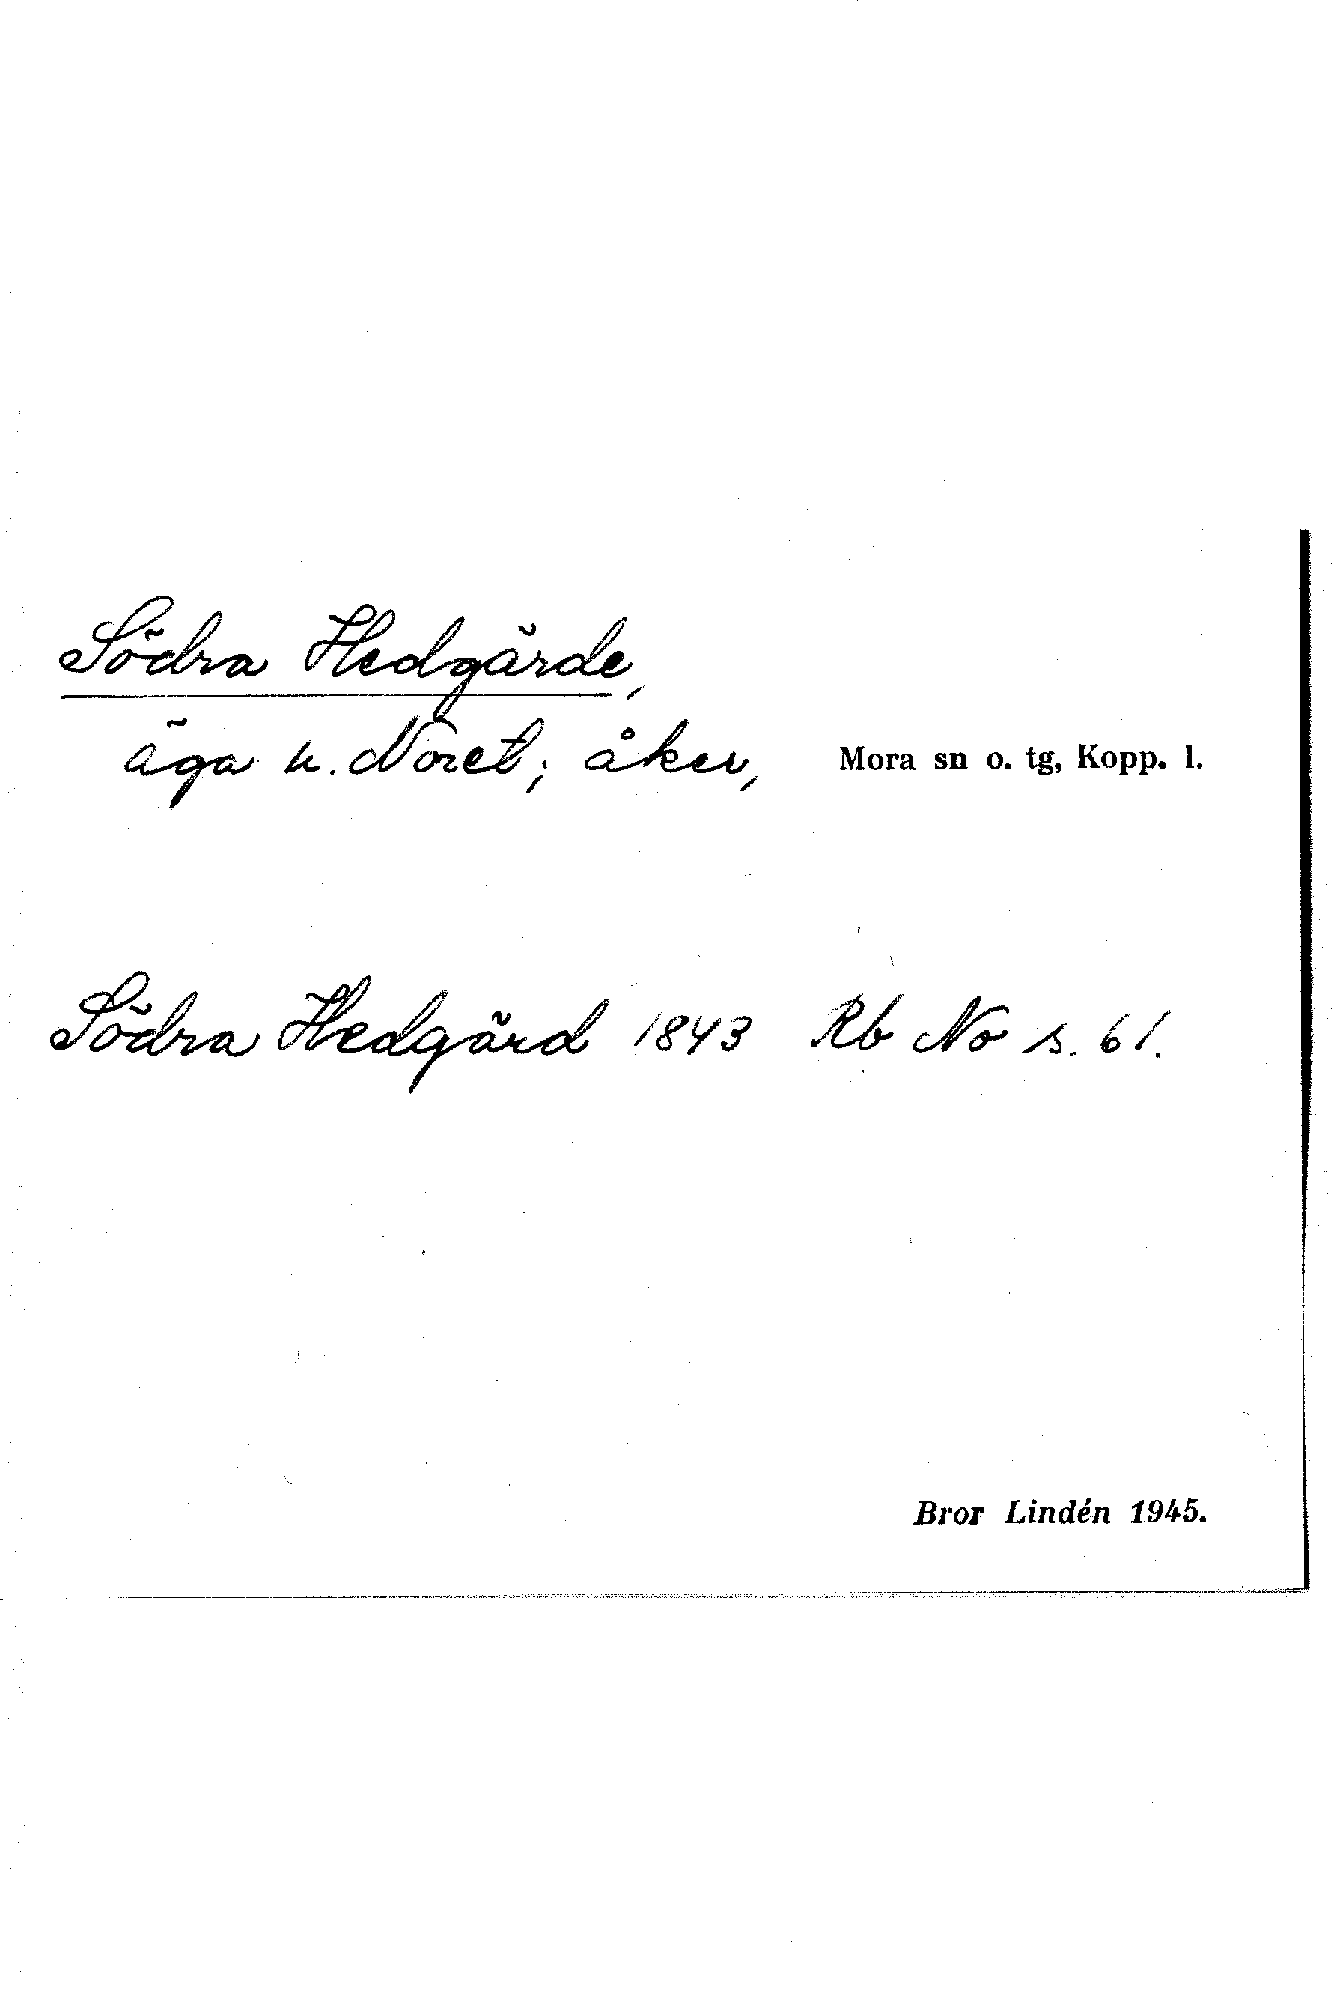 Södra Hedgärde,
äga u. Noret; åker, Mora sn o. tg, Kopp. l.
Södra Hedgärd 1843 Rb No s. 61.
Bror Lindén 1945.